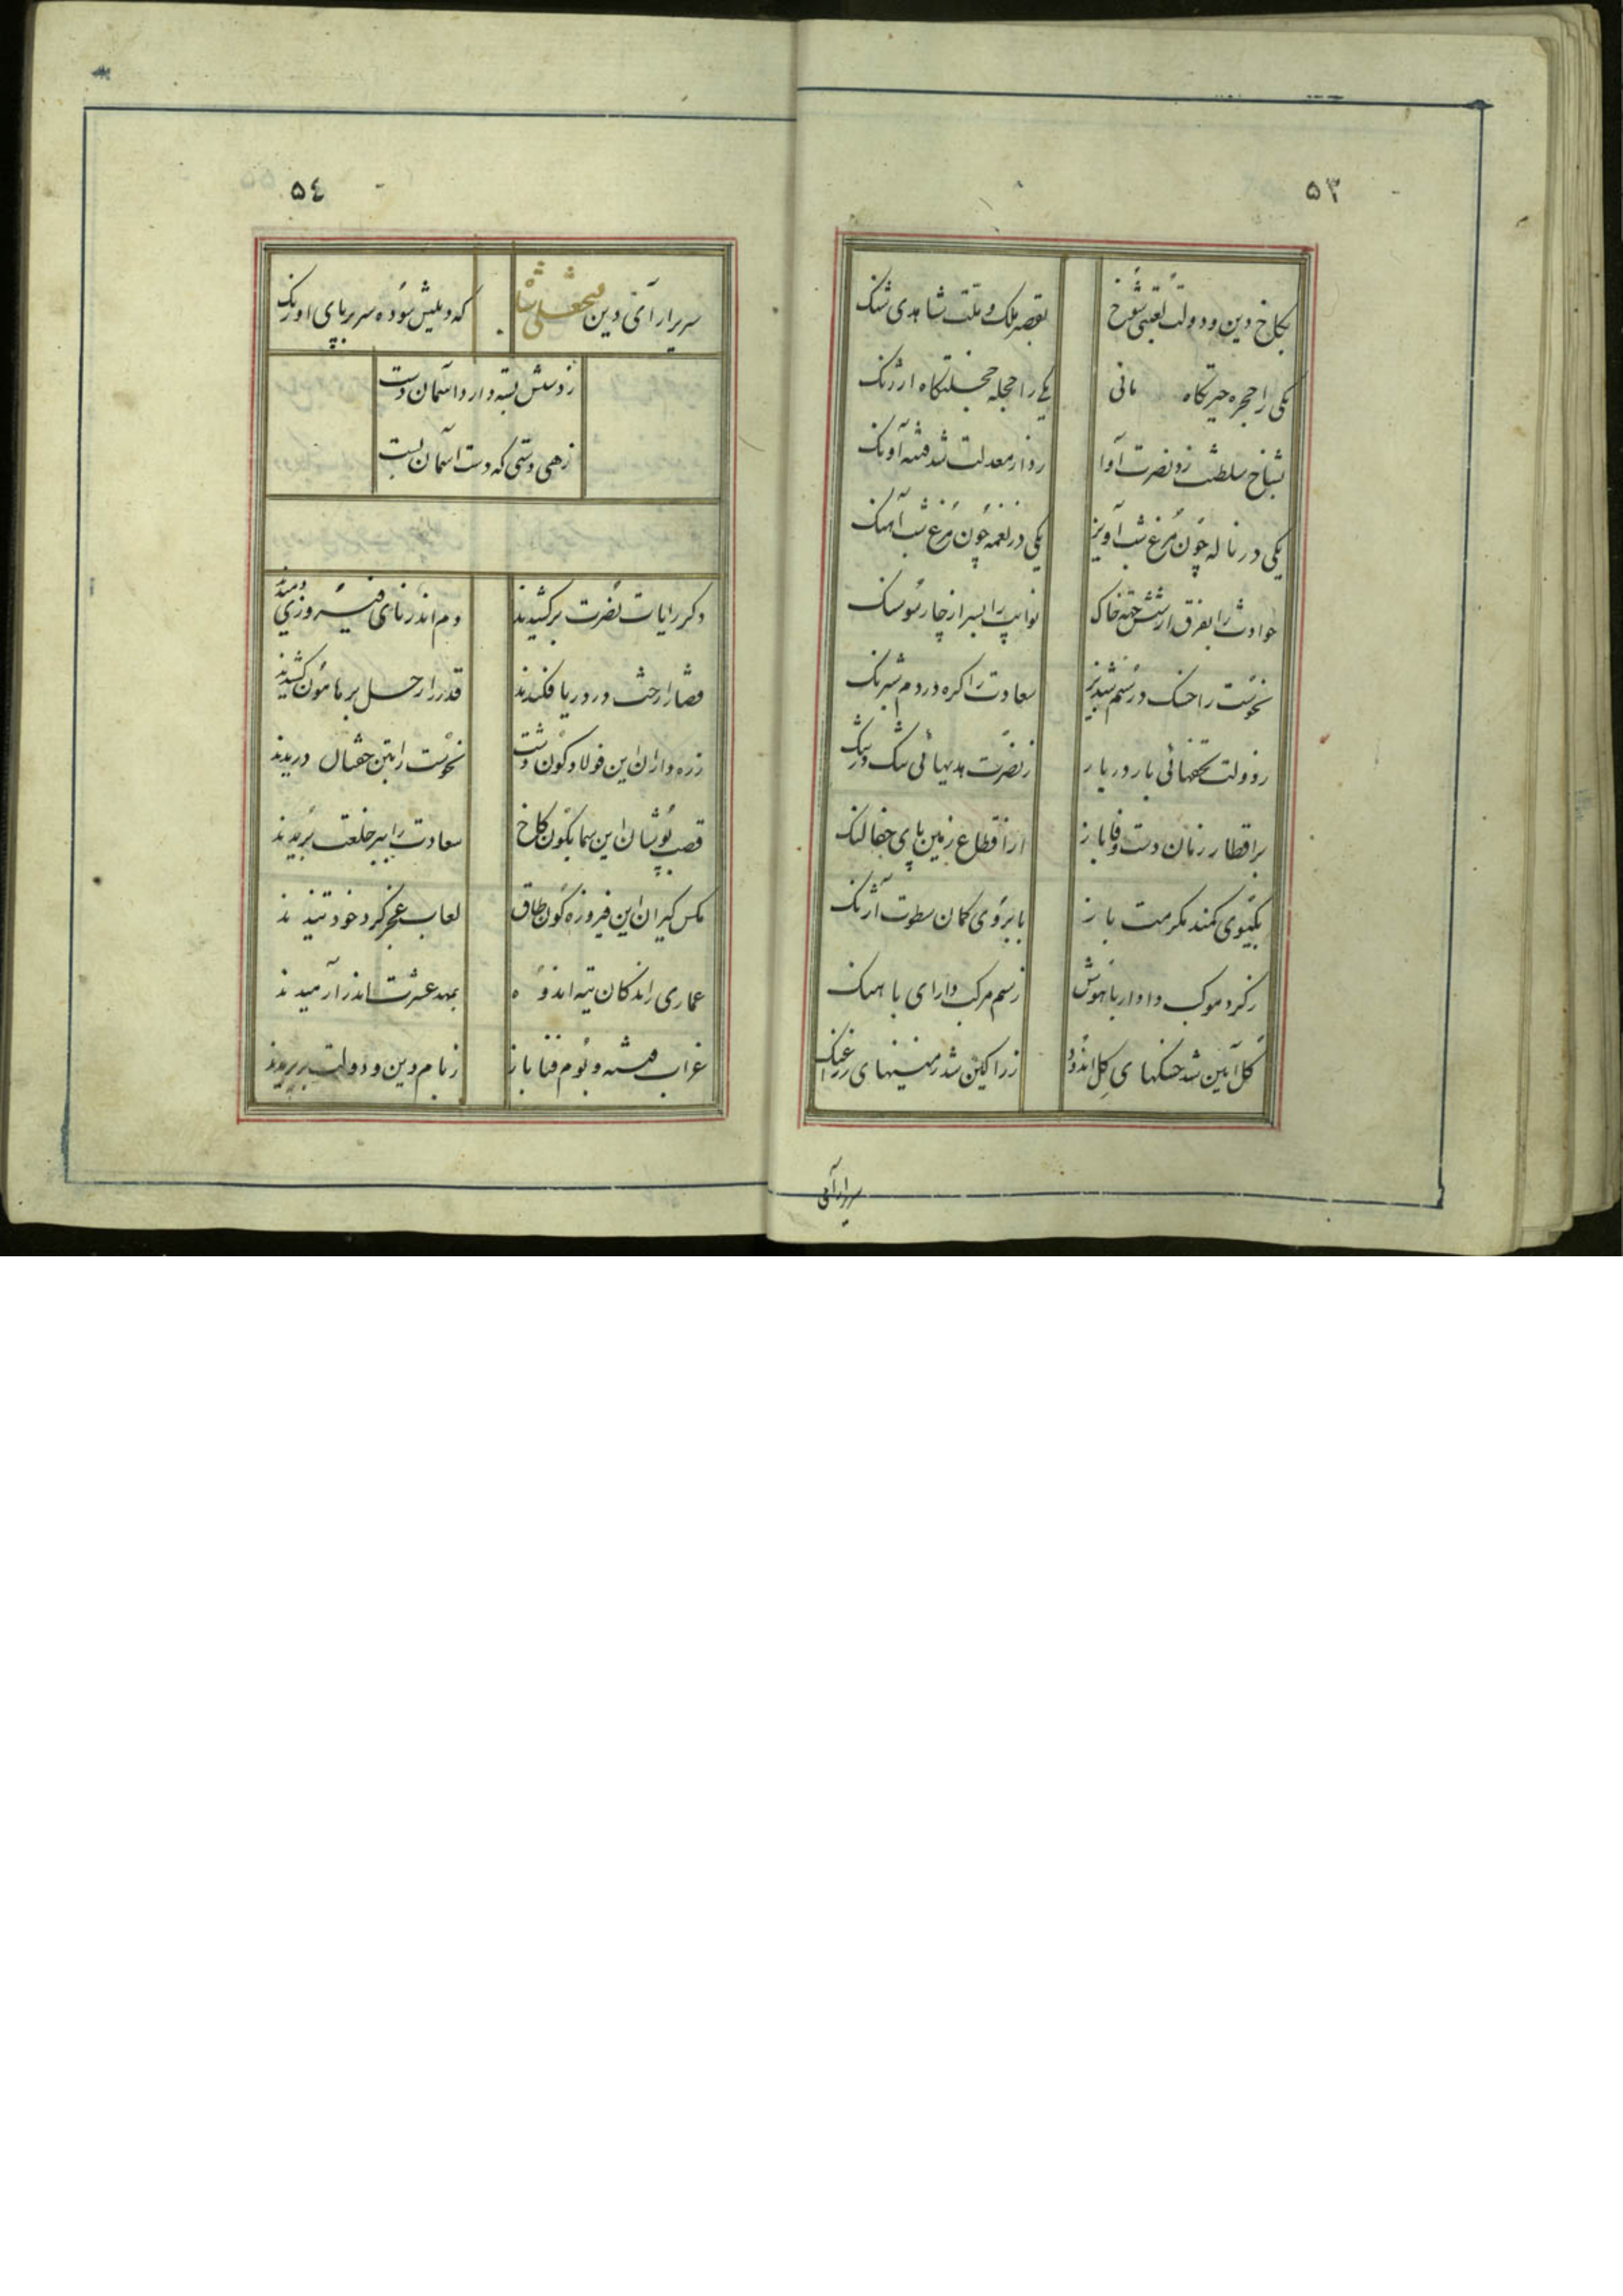 ۵۳
بکاخ دین و دولت لعبتی شوخ بقصر ملک و ملت شاهدی شنک
یکی را حجره حیرتکاه مانی یکی را حجله خجلتکاه ارژنک
بشاخ سلطنت زو نصرت آوا زدار معدلت شد فتنه آونک
یکی در ناله چون مرغ شب آویز یکی در نغمه چون مرغ شب آهنک
حوادث را بفرق از شش جهة خاک نوایب را بسر از چار سو سنک
نحوست را خسک در سم شبدیز سعادت را کره در دم شبرنک
ز دولت تحفهائی بار در بار ز نصرت هدیهائی تنک در تنک
بر اقطار زمان دست وفا باز از اقطاع زمین پای جفا لنک
بکیسوی کمند مکرمت باز بابروی کمان سطوت آژنک
ز کرد موکب دادار باهوش ز سم مرکب دارای با هنک
کل آیین شد خسکهای کل اندود زر اکین شد زمینهای زراغنک
سریر آرآی
۵٤
سریر آرآی دین فتحعلی شاه که دیلمش سوده سر بر پای اورنک
ز دستش بسته دارد آسمان دست
زهی دستی که دست آسمان بست
دکر رایات نصرت برکشیدند دم اندر نای فیروزی دمیدند
قضا را رخت در دریا فکندند قدر را رحل بر هامون کشیدند
زره داران این فولادکون دشت نحوست را بتن خفتان دریدند
قصب پوشان این سیمابکون کاخ سعادت را ببر خلعت بریدند
مکس کیران این فیروزه کون طاق لعاب عجز کرد خود تنیدند
عماری راندکان تیه اندوه بمهد عشرت اندر آرمیدند
غراب فتنه و بوم فنا باز ز بام دین و دولت بر پریدند